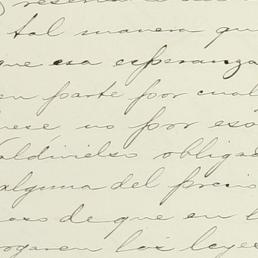 tal manera qu
que esa esperanza
en parte por cual
ese, no por eso
Valdivielso obligad
alguna del precio
caso de que en l
rogaren las leyes